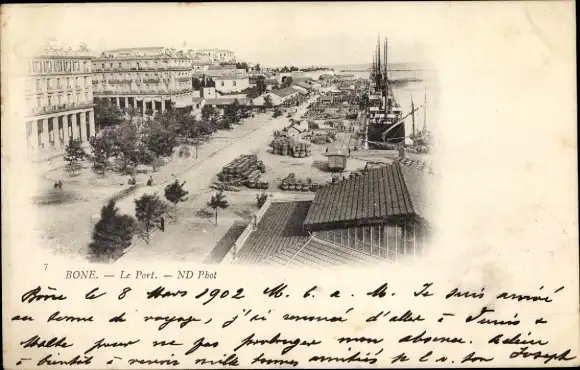 7 BONE. — Le Port. — ND Phot
Bône le 8 Mars 1902 M. C. a. M. Je suis arrivé
au terme de voyage, j'ai renoncé d'aller à Tunis &
Malte pour ne pas prolonger mon absence. Adieu
à bientôt à revoir mille bonnes amitiés ton Joseph